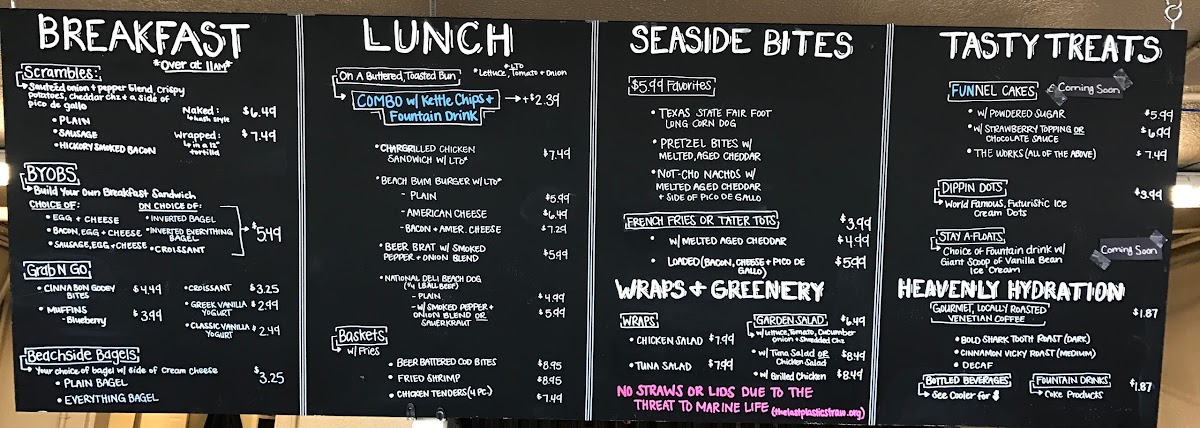 BREAKFAST
*Over at 11AM*
Scrambles:
Sauteéd onion + pepper blend, crispy
potatoes, cheddar chz + a side of
pico de gallo
• PLAIN
• SAUSAGE
• HICKORY SMOKED BACON
Naked:
hash style
$6.49
Wrapped:
in a 12"
tortilla
$7.49
BYOBS
Build Your Own Breakfast Sandwich
CHOICE OF:
• EGG + CHEESE
• BACON, EGG + CHEESE
• SAUSAGE, EGG + CHEESE
ON CHOICE OF:
• INVERTED BAGEL
• INVERTED EVERYTHING
BAGEL
• CROISSANT
$5.49
Grab N GO
• CINNABON GOOEY
BITES
$4.49
• MUFFINS
- Blueberry
$3.99
• CROISSANT $3.25
• GREEK VANILLA
YOGURT
$2.99
• CLASSIC VANILLA
YOGURT
$2.49
Beachside Bagels
Your choice of bagel w/ side of cream cheese
$3.25
• PLAIN BAGEL
• EVERYTHING BAGEL
LUNCH
On A Buttered, Toasted Bun
*LTO
*Lettuce, Tomato + Onion
COMBO w/ Kettle Chips +
Fountain Drink
→ +$2.39
• CHARGRILLED CHICKEN
SANDWICH W/ LTO*
$7.49
• BEACH BUM BURGER W/ LTO*
- PLAIN $5.99
- AMERICAN CHEESE $6.49
- BACON + AMER. CHEESE $7.29
• BEER BRAT W/ SMOKED
PEPPER + ONION BLEND
$5.99
• NATIONAL DELI BEACH DOG
(1/4 LB ALL BEEF)
- PLAIN $4.99
- W/ SMOKED PEPPER +
ONION BLEND OR
SAUERKRAUT
$5.99
Baskets
w/ Fries
• BEER BATTERED COD BITES $8.95
• FRIED SHRIMP $8.95
• CHICKEN TENDERS (4 PC.) $7.49
SEASIDE BITES
$5.99 Favorites
• TEXAS STATE FAIR FOOT
LONG CORN DOG
• PRETZEL BITES W/
MELTED, AGED CHEDDAR
• NOT-CHO NACHOS W/
MELTED AGED CHEDDAR
+ SIDE OF PICO DE GALLO
FRENCH FRIES OR TATER TOTS $3.99
• W/ MELTED AGED CHEDDAR $4.99
• LOADED (BACON, CHEESE + PICO DE
GALLO)
$5.99
WRAPS + GREENERY
WRAPS
• CHICKEN SALAD $7.99
• TUNA SALAD $7.99
GARDEN SALAD $6.49
w/ Lettuce, Tomato, Cucumber
Onion + Shredded Chz
• w/ Tuna Salad OR
Chicken Salad
$8.49
• w/ Grilled Chicken $8.49
NO STRAWS OR LIDS DUE TO THE
THREAT TO MARINE LIFE (thelastplasticstraw.org)
TASTY TREATS
FUNNEL CAKES
Coming Soon
• W/ POWDERED SUGAR $5.99
• W/ STRAWBERRY TOPPING OR
CHOCOLATE SAUCE
$6.99
• THE WORKS (ALL OF THE ABOVE) $7.49
DIPPIN DOTS $3.99
World Famous, Futuristic Ice
Cream Dots
STAY A-FLOATS
Choice of Fountain drink w/
Giant Scoop of Vanilla Bean
Ice Cream
Coming Soon
HEAVENLY HYDRATION
GOURMET, LOCALLY ROASTED
VENETIAN COFFEE
$1.87
• BOLD SHARK TOOTH ROAST (DARK)
• CINNAMON VICKY ROAST (MEDIUM)
• DECAF
BOTTLED BEVERAGES
See Cooler for $
FOUNTAIN DRINKS
Coke Products
$1.87